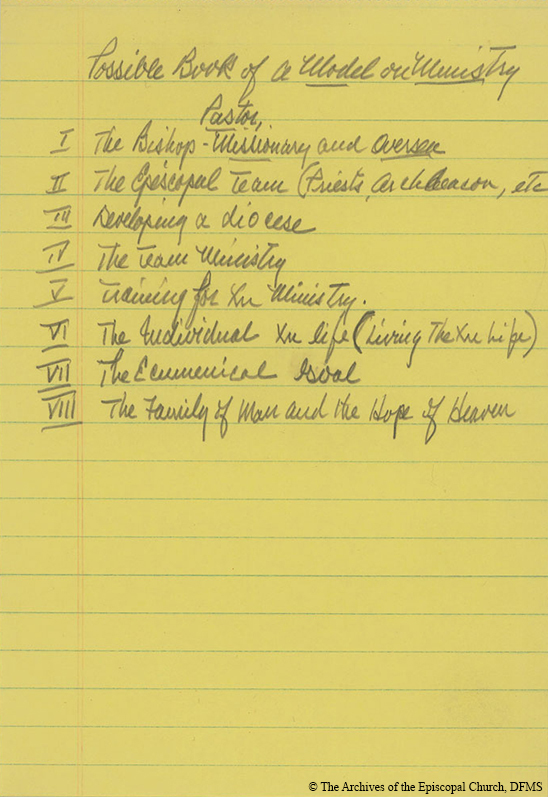 Possible Book of a Model on Ministry
Pastor,
I The Bishop - Missionary and Overseer
II The Episcopal Team (Priests, Archdeacon, etc
III Developing a diocese
IV The Team Ministry
V Training for Xn Ministry.
VI The Individual Xn life (Living The Xn Life)
VII The Ecumenical Goal
VIII The Family of Man and the Hope of Heaven
© The Archives of the Episcopal Church, DFMS